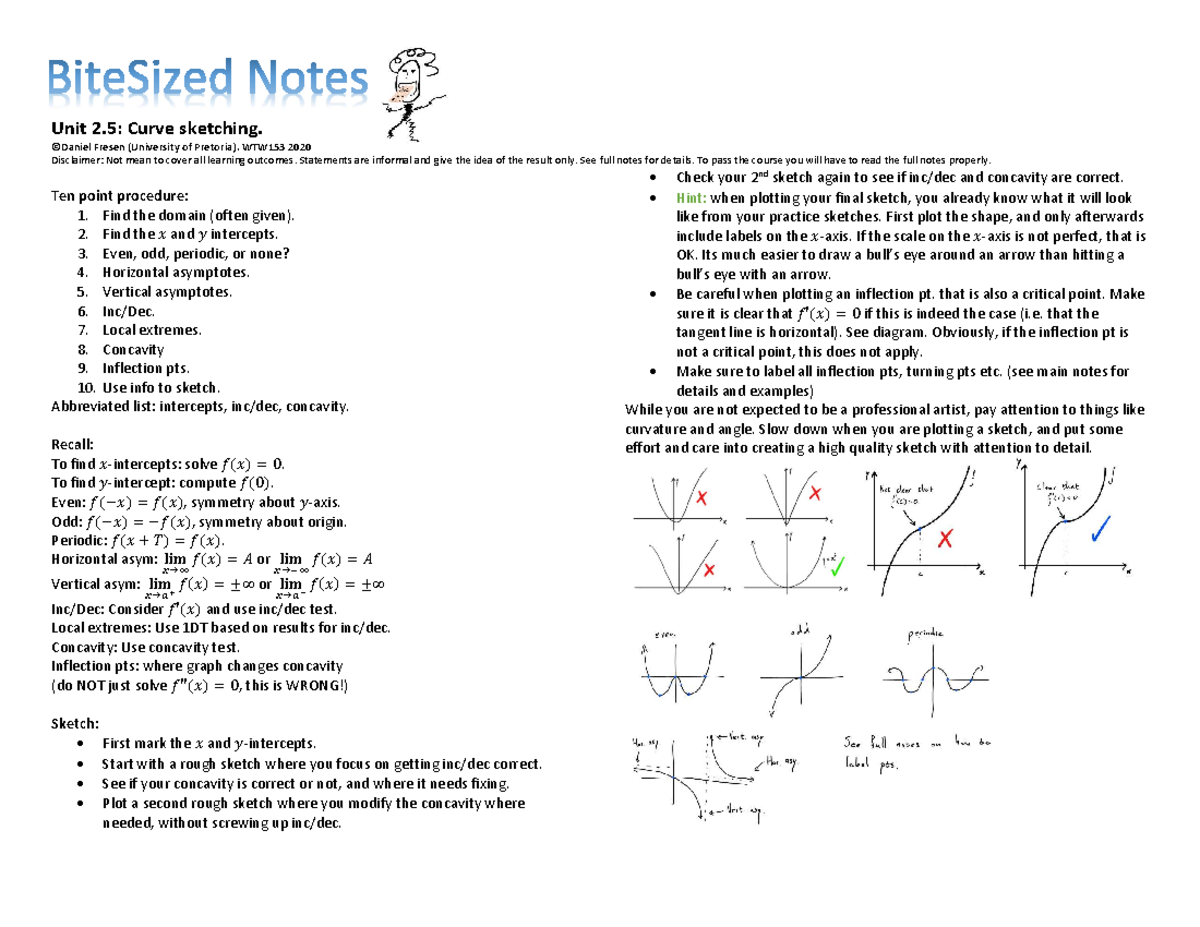 BiteSized Notes
Unit 2.5: Curve sketching.
©Daniel Fresen (University of Pretoria). WTW153 2020
Disclaimer: Not mean to cover all learning outcomes. Statements are informal and give the idea of the result only. See full notes for details. To pass the course you will have to read the full notes properly.
Ten point procedure:
1. Find the domain (often given).
2. Find the 𝑥 and 𝑦 intercepts.
3. Even, odd, periodic, or none?
4. Horizontal asymptotes.
5. Vertical asymptotes.
6. Inc/Dec.
7. Local extremes.
8. Concavity
9. Inflection pts.
10. Use info to sketch.
Abbreviated list: intercepts, inc/dec, concavity.
Recall:
To find 𝑥-intercepts: solve 𝑓(𝑥) = 0.
To find 𝑦-intercept: compute 𝑓(0).
Even: 𝑓(−𝑥) = 𝑓(𝑥), symmetry about 𝑦-axis.
Odd: 𝑓(−𝑥) = −𝑓(𝑥), symmetry about origin.
Periodic: 𝑓(𝑥 + 𝑇) = 𝑓(𝑥).
Horizontal asym: lim 𝑥→∞ 𝑓(𝑥) = 𝐴 or lim 𝑥→−∞ 𝑓(𝑥) = 𝐴
Vertical asym: lim 𝑥→𝑎⁺ 𝑓(𝑥) = ±∞ or lim 𝑥→𝑎⁻ 𝑓(𝑥) = ±∞
Inc/Dec: Consider 𝑓′(𝑥) and use inc/dec test.
Local extremes: Use 1DT based on results for inc/dec.
Concavity: Use concavity test.
Inflection pts: where graph changes concavity
(do NOT just solve 𝑓″(𝑥) = 0, this is WRONG!)
Sketch:
• First mark the 𝑥 and 𝑦-intercepts.
• Start with a rough sketch where you focus on getting inc/dec correct.
• See if your concavity is correct or not, and where it needs fixing.
• Plot a second rough sketch where you modify the concavity where
needed, without screwing up inc/dec.
• Check your 2nd sketch again to see if inc/dec and concavity are correct.
• Hint: when plotting your final sketch, you already know what it will look
like from your practice sketches. First plot the shape, and only afterwards
include labels on the 𝑥-axis. If the scale on the 𝑥-axis is not perfect, that is
OK. Its much easier to draw a bull's eye around an arrow than hitting a
bull's eye with an arrow.
• Be careful when plotting an inflection pt. that is also a critical point. Make
sure it is clear that 𝑓′(𝑥) = 0 if this is indeed the case (i.e. that the
tangent line is horizontal). See diagram. Obviously, if the inflection pt is
not a critical point, this does not apply.
• Make sure to label all inflection pts, turning pts etc. (see main notes for
details and examples)
While you are not expected to be a professional artist, pay attention to things like
curvature and angle. Slow down when you are plotting a sketch, and put some
effort and care into creating a high quality sketch with attention to detail.
Y
x
Not clear that
f'(c)=0
c
x
Y
clear that
f'(c)=0
c
x
y=x²
even
odd
periodic
Hor. asy.
Vert. asy
Hor. asy.
Vert asy.
See full notes on how to
label pts.